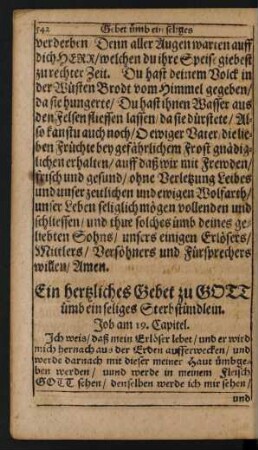 542 Gebet ümb ein seliges
verderben. Denn aller Augen warten auff
dich HERR/ welchen du ihre Speise giebest
zu rechter Zeit. Du hast deinem Volck in
der Wüsten Brodt vom Himmel gegeben/
da sie hungerte/ Du hast ihnen Wasser aus
den Felsen fliessen lassen/ da sie dürstete/ Al-
so kanstu auch noch/ O ewiger Vater/ die lie-
ben Früchte bey gefährlichem Frost gnädig-
lichen erhalten/ auff daß wir mit Frewden/
frisch und gesund/ ohne Verletzung Leibes
und unser zeitlichen und ewigen Wolfarth/
unser Leben seliglich mögen vollenden und
schliessen/ und thue solches ümb deines ge-
liebten Sohns/ unsers einigen Erlösers/
Mittlers/ Versöhners und Fürsprechers
willen/ Amen.
Ein hertzliches Gebet zu GOTT
ümb ein seliges Sterbstündlein.
Job am 19. Capitel.
Ich weis/ daß mein Erlöser lebet/ und er wird
mich hernach aus der Erden aufferwecken/ und
werde darnach mit dieser meiner Haut ümbge-
ben werden/ uund werde in meinem Fleisch
GOTT sehen/ denselben werde ich mir sehen/
und